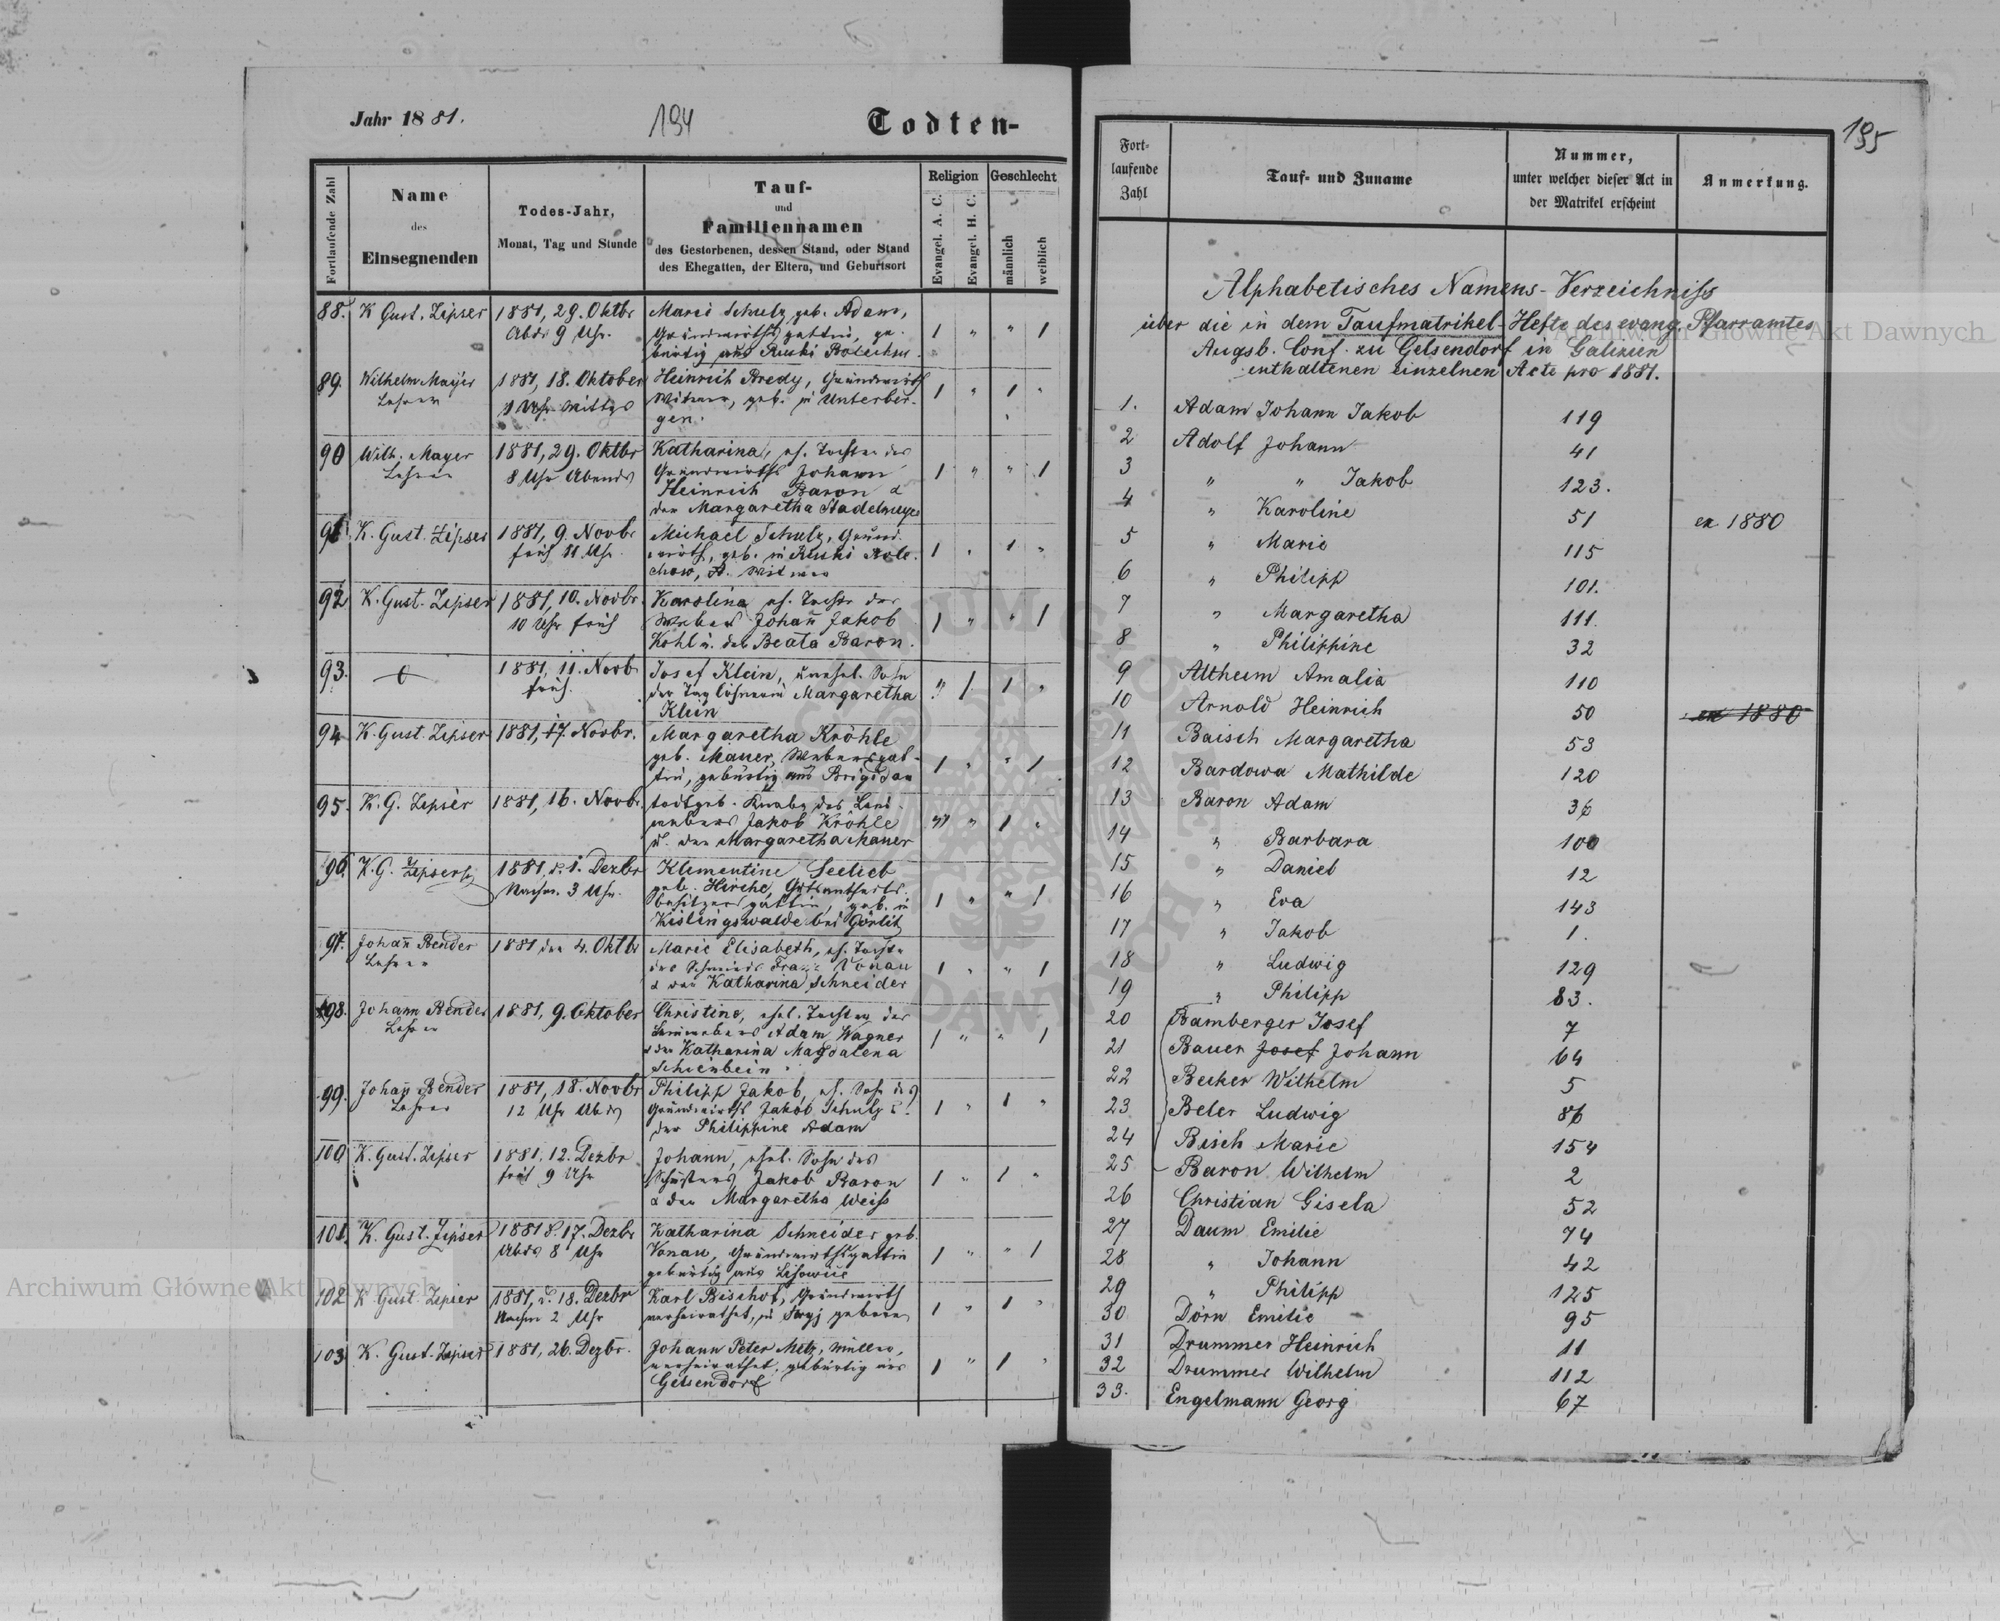 Jahr 1881.
194
Todten-
Fortlaufende Zahl
Name
des
Einsegnenden
Todes-Jahr,
Monat, Tag und Stunde
Tauf-
und
Familiennamen
des Gestorbenen, dessen Stand, oder Stand
des Ehegatten, der Eltern, und Geburtsort
Religion
Evangel. A. C.
Evangel. H. C.
Geschlecht
männlich
weiblich
88. K Gust. Zipser 1881, 29. Oktbr Marie Schulz geb. Adam,
Abds 9 Uhr. Grundwirthsgattin, ge-
bürtig aus Ruski Bolechow. 1 " " 1
89. Wilhelm Mayer 1881, 18. Oktober Heinrich Bredy, Grundwirth
Lehrer 1 Uhr Mittgs Witwer, geb. in Unterber- 1 " 1 "
gen.
90 Wilh. Mayer 1881, 29. Oktbr Katharina, eh. Tochter des
Lehrer 8 Uhr Abends Grundwirths Johann 1 " " 1
Heinrich Baron &
der Margaretha Stadelmeyer
91. K. Gust. Zipser 1881, 9. Novbr Michael Schulz, Grund-
früh 11 Uhr. wirth, geb. in Ruski Bole- 1 " 1 "
chow, A. Witwer
92 K. Gust. Zipser 1881, 10. Novbr. Karolina eh. Tochter des
10 Uhr früh Webers Johañ Jakob 1 " " 1
Kohl u. der Beata Baron.
93. 1881, 11. Novb. Josef Klein, unehel. Sohn
früh. der Taglöhnerin Margaretha " 1 1 "
Klein
94 K. Gust. Zipser 1881, 17. Novbr. Margaretha Kröhle
geb. Mauer, Webersgat-
tin, gebürtig aus Brigidau 1 " " 1
95. K. G. Zipser 1881, 16. Novbr. todtgeb. Knabe des Lein-
webers Jakob Kröhle " " 1 "
u. der Margaretha Mauer
96. K. G. Zipser 1881, d. 1. Dezbr Klementine Seelieb
Nachm. 3 Uhr. geb. Hirche, Gutsantheils-
besitzersgattin, geb. in 1 " " 1
Kislingswalde bei Görlitz
97. Johañ Bender 1881 den 4. Oktbr Marie Elisabeth, eh. Tochter
Lehrer des Schmieds Franz Vonau 1 " " 1
& der Katharina Schneider
98. Johann Bender 1881, 9. Oktober Christine, ehel. Tochter des
Lehrer Leinwebers Adam Wagner 1 " " 1
& der Katharina Magdalena
Schienbein.
99. Johañ Bender 1881, 18. Novbr Philipp Jakob, eh. Sohn des
Lehrer 12 Uhr Abds Grundwirths Jakob Schulz u. 1 " 1 "
der Philippine Adam
100 K. Gust. Zipser 1881. 12. Dezbr Johann, ehel. Sohn des
früh 9 Uhr Schusters Jakob Baron 1 " 1 "
& der Margaretha Weiss
101. K. Gust. Zipser 1881 d. 17. Dezbr Katharina Schneider geb.
Abds 8 Uhr Vonau, Grundwirthsgattin 1 " " 1
gebürtig aus Lisowice
102 K Gust. Zipser 1881, d. 18. Dezbr Karl Bischof, Grundwirth
Nachm 2 Uhr verheirathet, in Stryj geboren 1 " 1 "
103 K. Gust. Zipser 1881, 26. Dezbr. Johann Peter Metz, Müller,
verheirathet, gebürtig aus 1 " 1 "
Gelsendorf
195
Fort-
laufende
Zahl
Tauf- und Zuname
Nummer,
unter welcher dieser Act in
der Matrikel erscheint
Anmerkung.
Alphabetisches Namens-Verzeichniss
über die in dem Taufmatrikel-Hefte des evang. Pfarramtes
Augsb. Conf. zu Gelsendorf in Galizien
enthaltenen einzelnen Acte pro 1881.
1. Adam Johann Jakob 119
2 Adolf Johann 41
3 " " Jakob 123.
4 " Karoline 51 ex 1880
5 " Marie 115
6 " Philipp 101.
7 " Margaretha 111.
8 " Philippine 32
9 Altheim Amalia 110
10 Arnold Heinrich 50 ex 1880
11 Baisch Margaretha 53
12 Bardowa Mathilde 120
13 Baron Adam 36
14 " Barbara 100
15 " Daniel 12
16 " Eva 143
17 " Jakob 1.
18 " Ludwig 129
19 " Philipp 83.
20 Bamberger Josef 7
21 Bauer Josef Johann 64
22 Becker Wilhelm 5
23 Beler Ludwig 86
24 Bisch Marie 154
25 Baron Wilhelm 2
26 Christian Gisela 52
27 Daum Emilie 74
28 " Johann 42
29 " Philipp 125
30 Dörn Emilie 95
31 Drummer Heinrich 11
32 Drummer Wilhelm 112
33. Engelmann Georg 67
Archiwum Główne Akt Dawnych
Archiwum Główne Akt Dawnych
ARCHIWUM GŁÓWNE AKT DAWNYCH